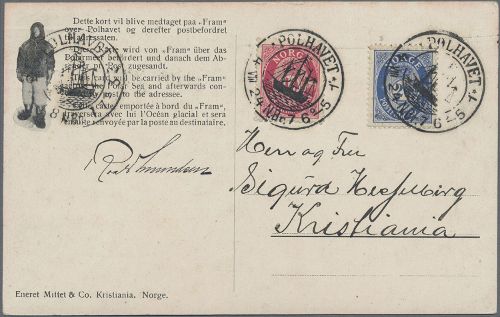 Dette kort vil blive medtaget paa „Fram"
over Polhavet og derefter postbefordret
adressaten.
wird von „Fram" über das
Polarmeer befördert und danach dem
per Post zugesandt.
This card will be carried by the „Fram"
Polar Sea and afterwards con-
to the addressee.
carte emportée à bord du „Fram",
traversera avec lui l'Océan glacial et sera
renvoyée par la poste au destinataire.
POLHAVET
NORGE
POLHAVET
24 VII 6 25
POLHAVET
24 VII 6 25
Roald Amundsen
Herr og Fru
Sigurd Hesselberg
Kristiania
Eneret Mittet & Co. Kristiania. Norge.